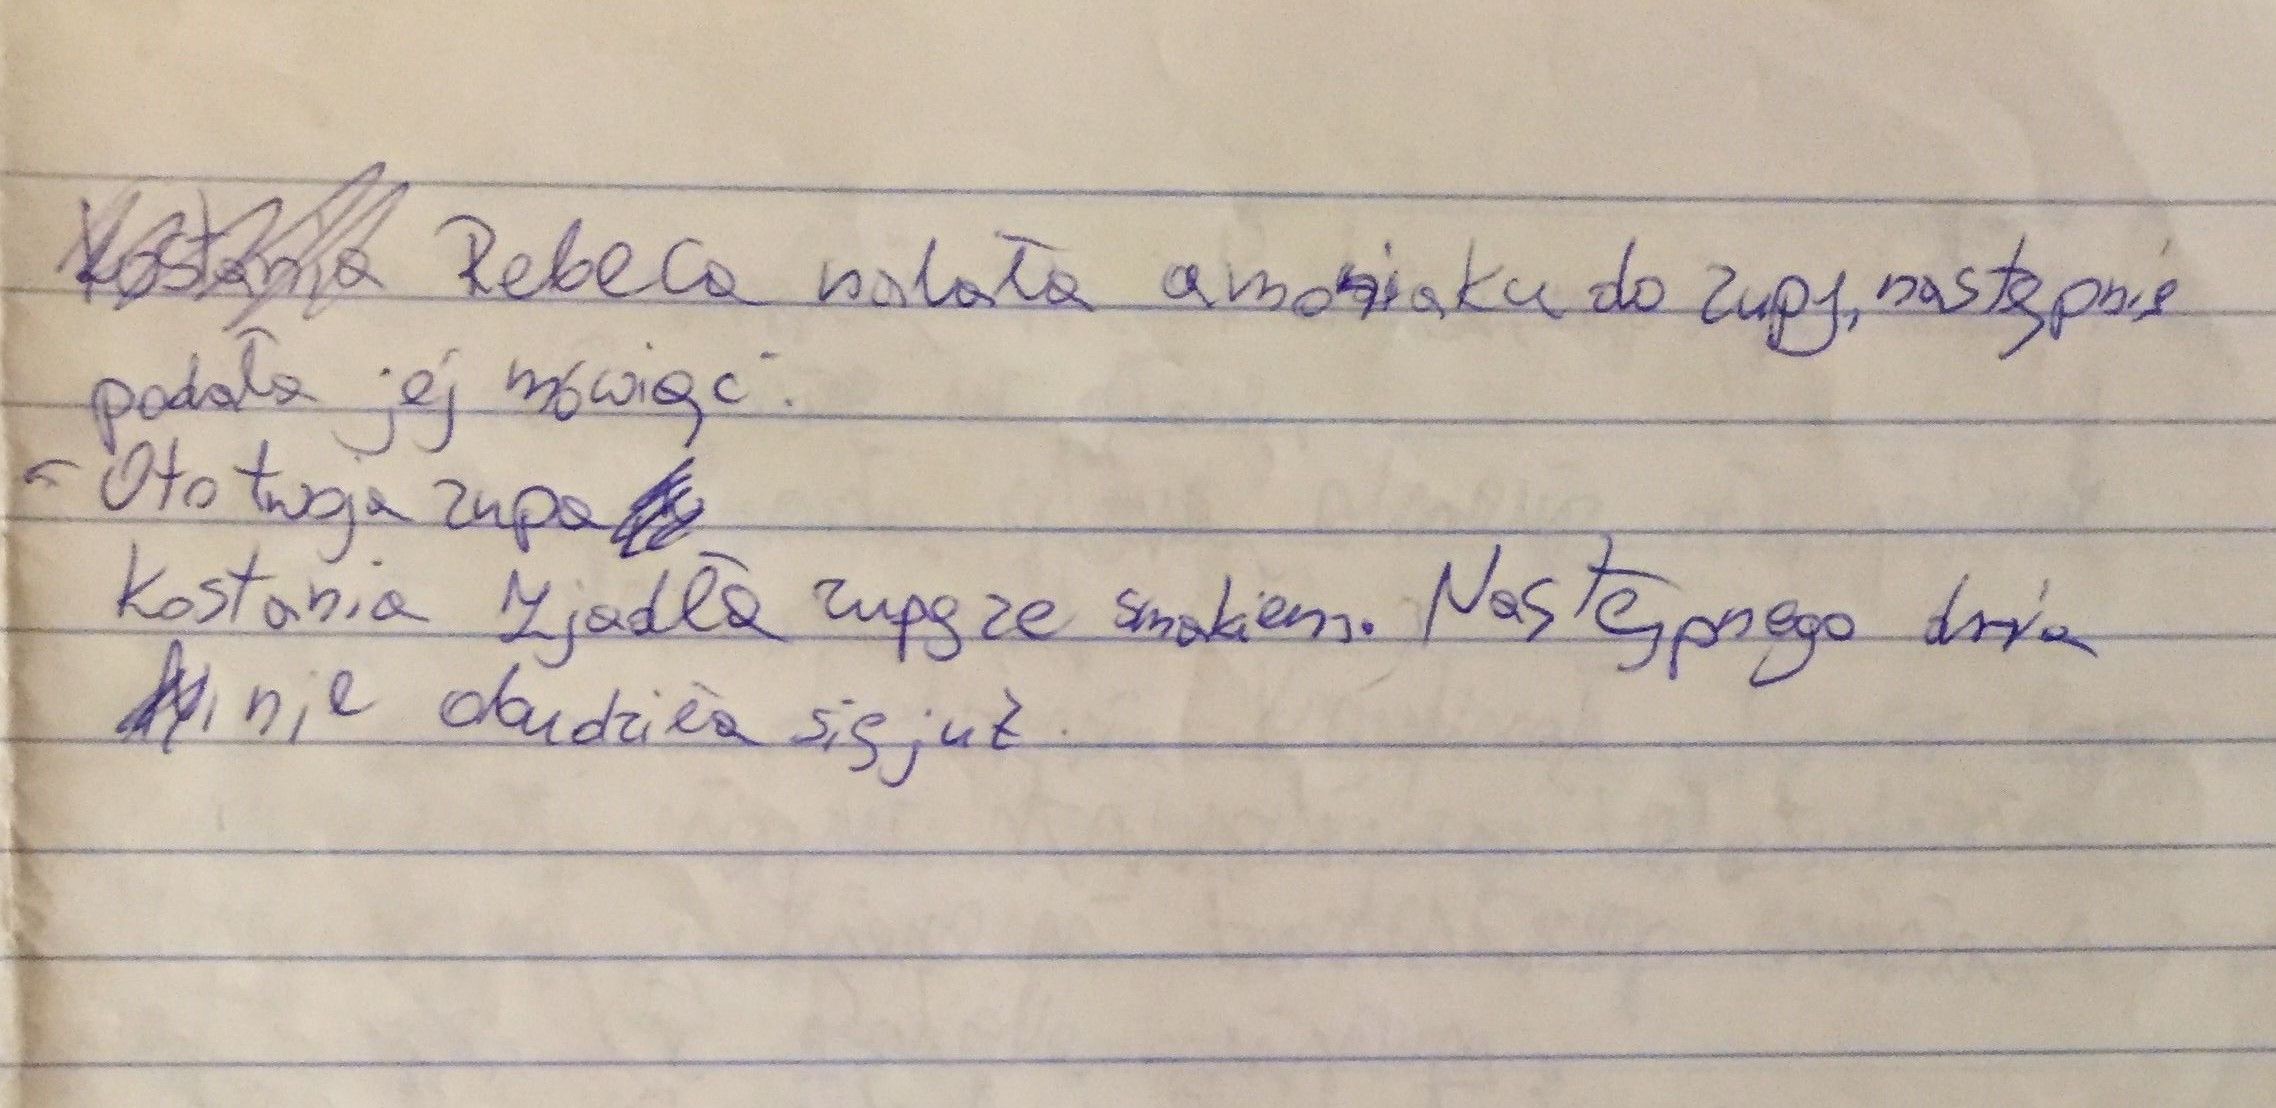 Kostania Rebeca nalała amoniaku do zupy, następnie
podała jej mówiąc:
- Oto twoja zupa
Kostania Zjadła zupę ze smakiem. Następnego dnia
nie obudziła się już.